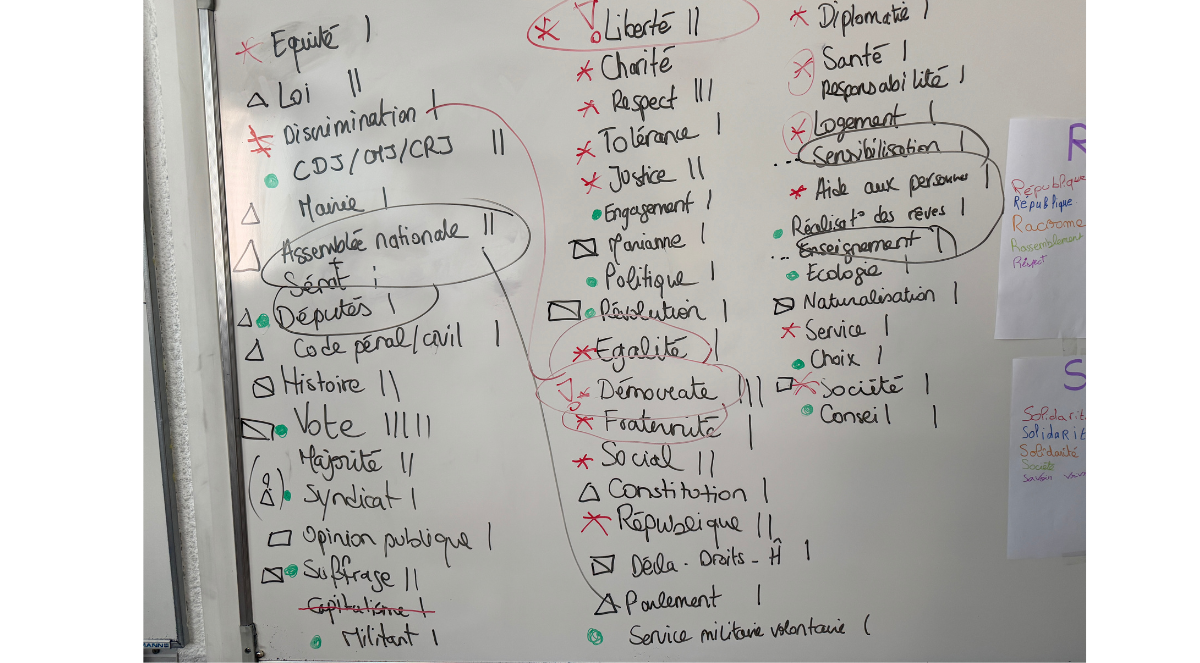 Equité |
Loi ||
Discrimination |
CDJ/CMJ/CRJ ||
Mairie |
Assemblée nationale ||
Sénat |
Députés |
Code pénal/civil |
Histoire ||
Vote |||||
Majorité ||
Syndicat |
Opinion publique |
Suffrage ||
Capitalisme |
Militant |
! Liberté ||
Charité
Respect |||
Tolérance |
Justice ||
Engagement |
Marianne |
Politique |
Révolution |
Egalité |
! Démocratie |||
Fraternité |
Social ||
Constitution |
République ||
Décla - Droits - Ĥ |
Parlement |
Service militaire volontaire (
Diplomatie |
Santé |
Responsabilité |
Logement |
... Sensibilisation |
Aide aux personnes |
Réalisat° des rêves |
... Enseignement |
Ecologie |
Naturalisation |
Service |
Choix |
Société |
Conseil |
R
République
République
Rassemblement
Respect
S
Solidarit
Solidarit
Solidarité
Société